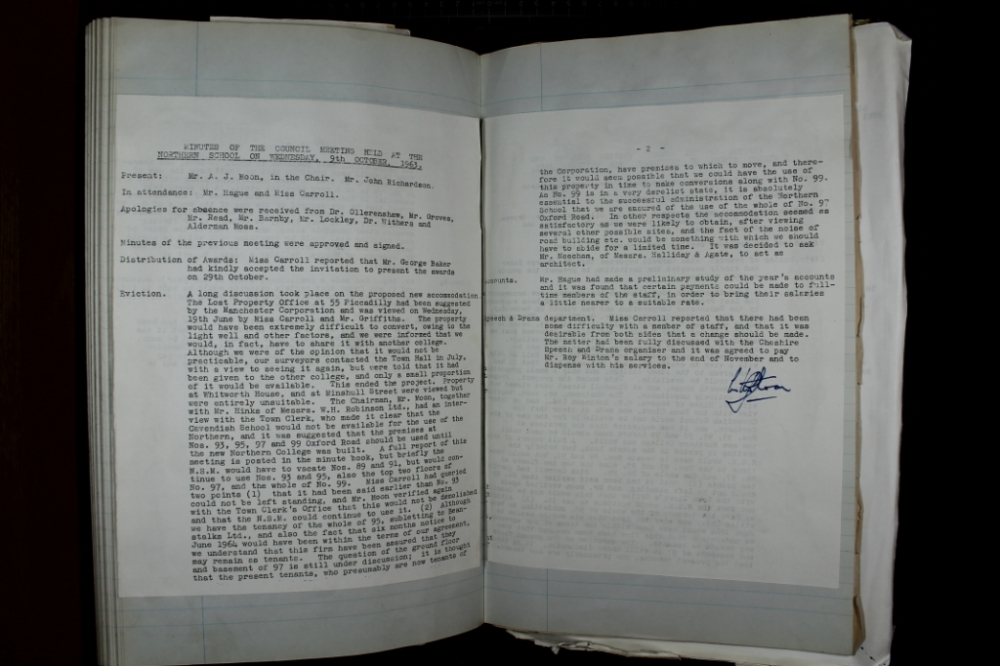 MINUTES OF THE COUNCIL MEETING HELD AT THE
NORTHERN SCHOOL ON WEDNESDAY, 9th OCTOBER, 1963.
Present: Mr. A. J. Moon, in the Chair. Mr. John Richardson.
In attendance: Mr. Hague and Miss Carroll.
Apologies for absence were received from Dr. Ollerenshaw, Mr. Groves,
Mr. Read, Mr. Barnby, Mr. Lockley, Dr. Withers and
Alderman Hoss.
Minutes of the previous meeting were approved and signed.
Distribution of Awards: Miss Carroll reported that Mr. George Baker
had kindly accepted the invitation to present the awards
on 29th October.
Eviction. A long discussion took place on the proposed new accommodation
The Lost Property Office at 55 Piccadilly had been suggested
by the Manchester Corporation and was viewed on Wednesday,
19th June by Miss Carroll and Mr. Griffiths. The property
would have been extremely difficult to convert, owing to the
light well and other factors, and we were informed that we
would, in fact, have to share it with another college.
Although we were of the opinion that it would not be
practicable, our surveyors contacted the Town Hall in July,
with a view to seeing it again, but were told that it had
been given to the other college, and only a small proportion
of it would be available. This ended the project. Property
at Whitworth House, and at Minshull Street were viewed but
were entirely unsuitable. The Chairman, Mr. Moon, together
with Mr. Hinks of Messrs. W.H. Robinson Ltd., had an inter-
view with the Town Clerk, who made it clear that the
Cavendish School would not be available for the use of the
Northern, and it was suggested that the premises at
Nos. 93, 95, 97 and 99 Oxford Road should be used until
the new Northern College was built. A full report of this
meeting is posted in the minute book, but briefly the
N.S.M. would have to vacate Nos. 89 and 91, but would con-
tinue to use Nos. 93 and 95, also the top two floors of
No. 97, and the whole of No. 99. Miss Carroll had queried
two points (1) that it had been said earlier than No. 93
could not be left standing, and Mr. Moon verified again
with the Town Clerk's Office that this would not be demolished
and that the N.S.M. could continue to use it. (2) Although
we have the tenancy of the whole of 95, subletting to Bean-
stalks Ltd., and also the fact that six months notice to
June 1964 would have been within the terms of our agreement,
we understand that this firm have been assured that they
may remain as tenants. The question of the ground floor
and basement of 97 is still under discussion; it is thought
that the present tenants, who presumably are now tenants of
- 2 -
the Corporation, have premises to which to move, and there-
fore it would seem possible that we could have the use of
this property in time to make conversions along with No. 99.
As No. 99 is in a very derelict state, it is absolutely
essential to the successful administration of the Northern
School that we are assured of the use of the whole of No. 97
Oxford Road. In other respects the accommodation seemed as
satisfactory as we were likely to obtain, after viewing
several other possible sites, and the fact of the noise of
road building etc. would be something with which we should
have to abide for a limited time. It was decided to ask
Mr. Meechan, of Messrs. Halliday & Agate, to act as
architect.
ccounts. Mr. Hague had made a preliminary study of the year's accounts
and it was found that certain payments could be made to full-
time members of the staff, in order to bring their salaries
a little nearer to a suitable rate.
peech & Drama department. Miss Carroll reported that there had been
some difficulty with a member of staff, and that it was
desirable from both sides that a change should be made.
The matter had been fully discussed with the Cheshire
Speech and Drama organiser and it was agreed to pay
Mr. Roy Minton's salary to the end of November and to
dispense with his services.